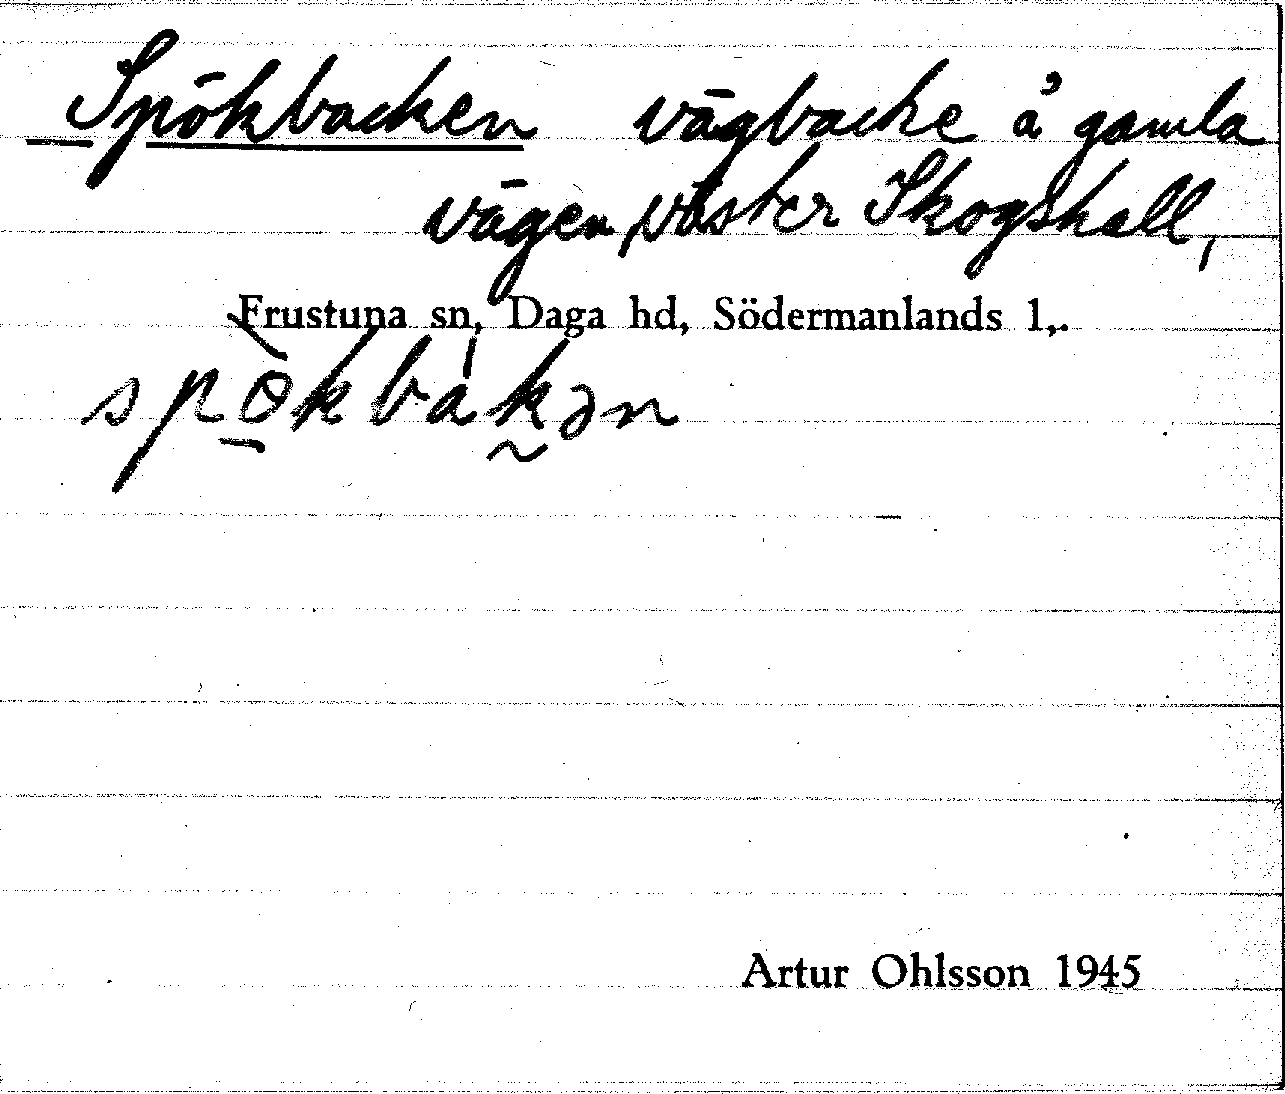 Spökbacken vägbacke å gamla
vägen, väster Skogshall,
Frustuna sn, Daga hd, Södermanlands l,.
spö̀kbákən
Artur Ohlsson 1945